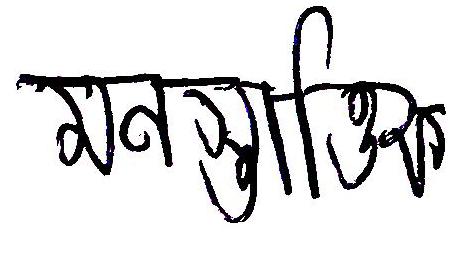 মনস্তাত্তিক